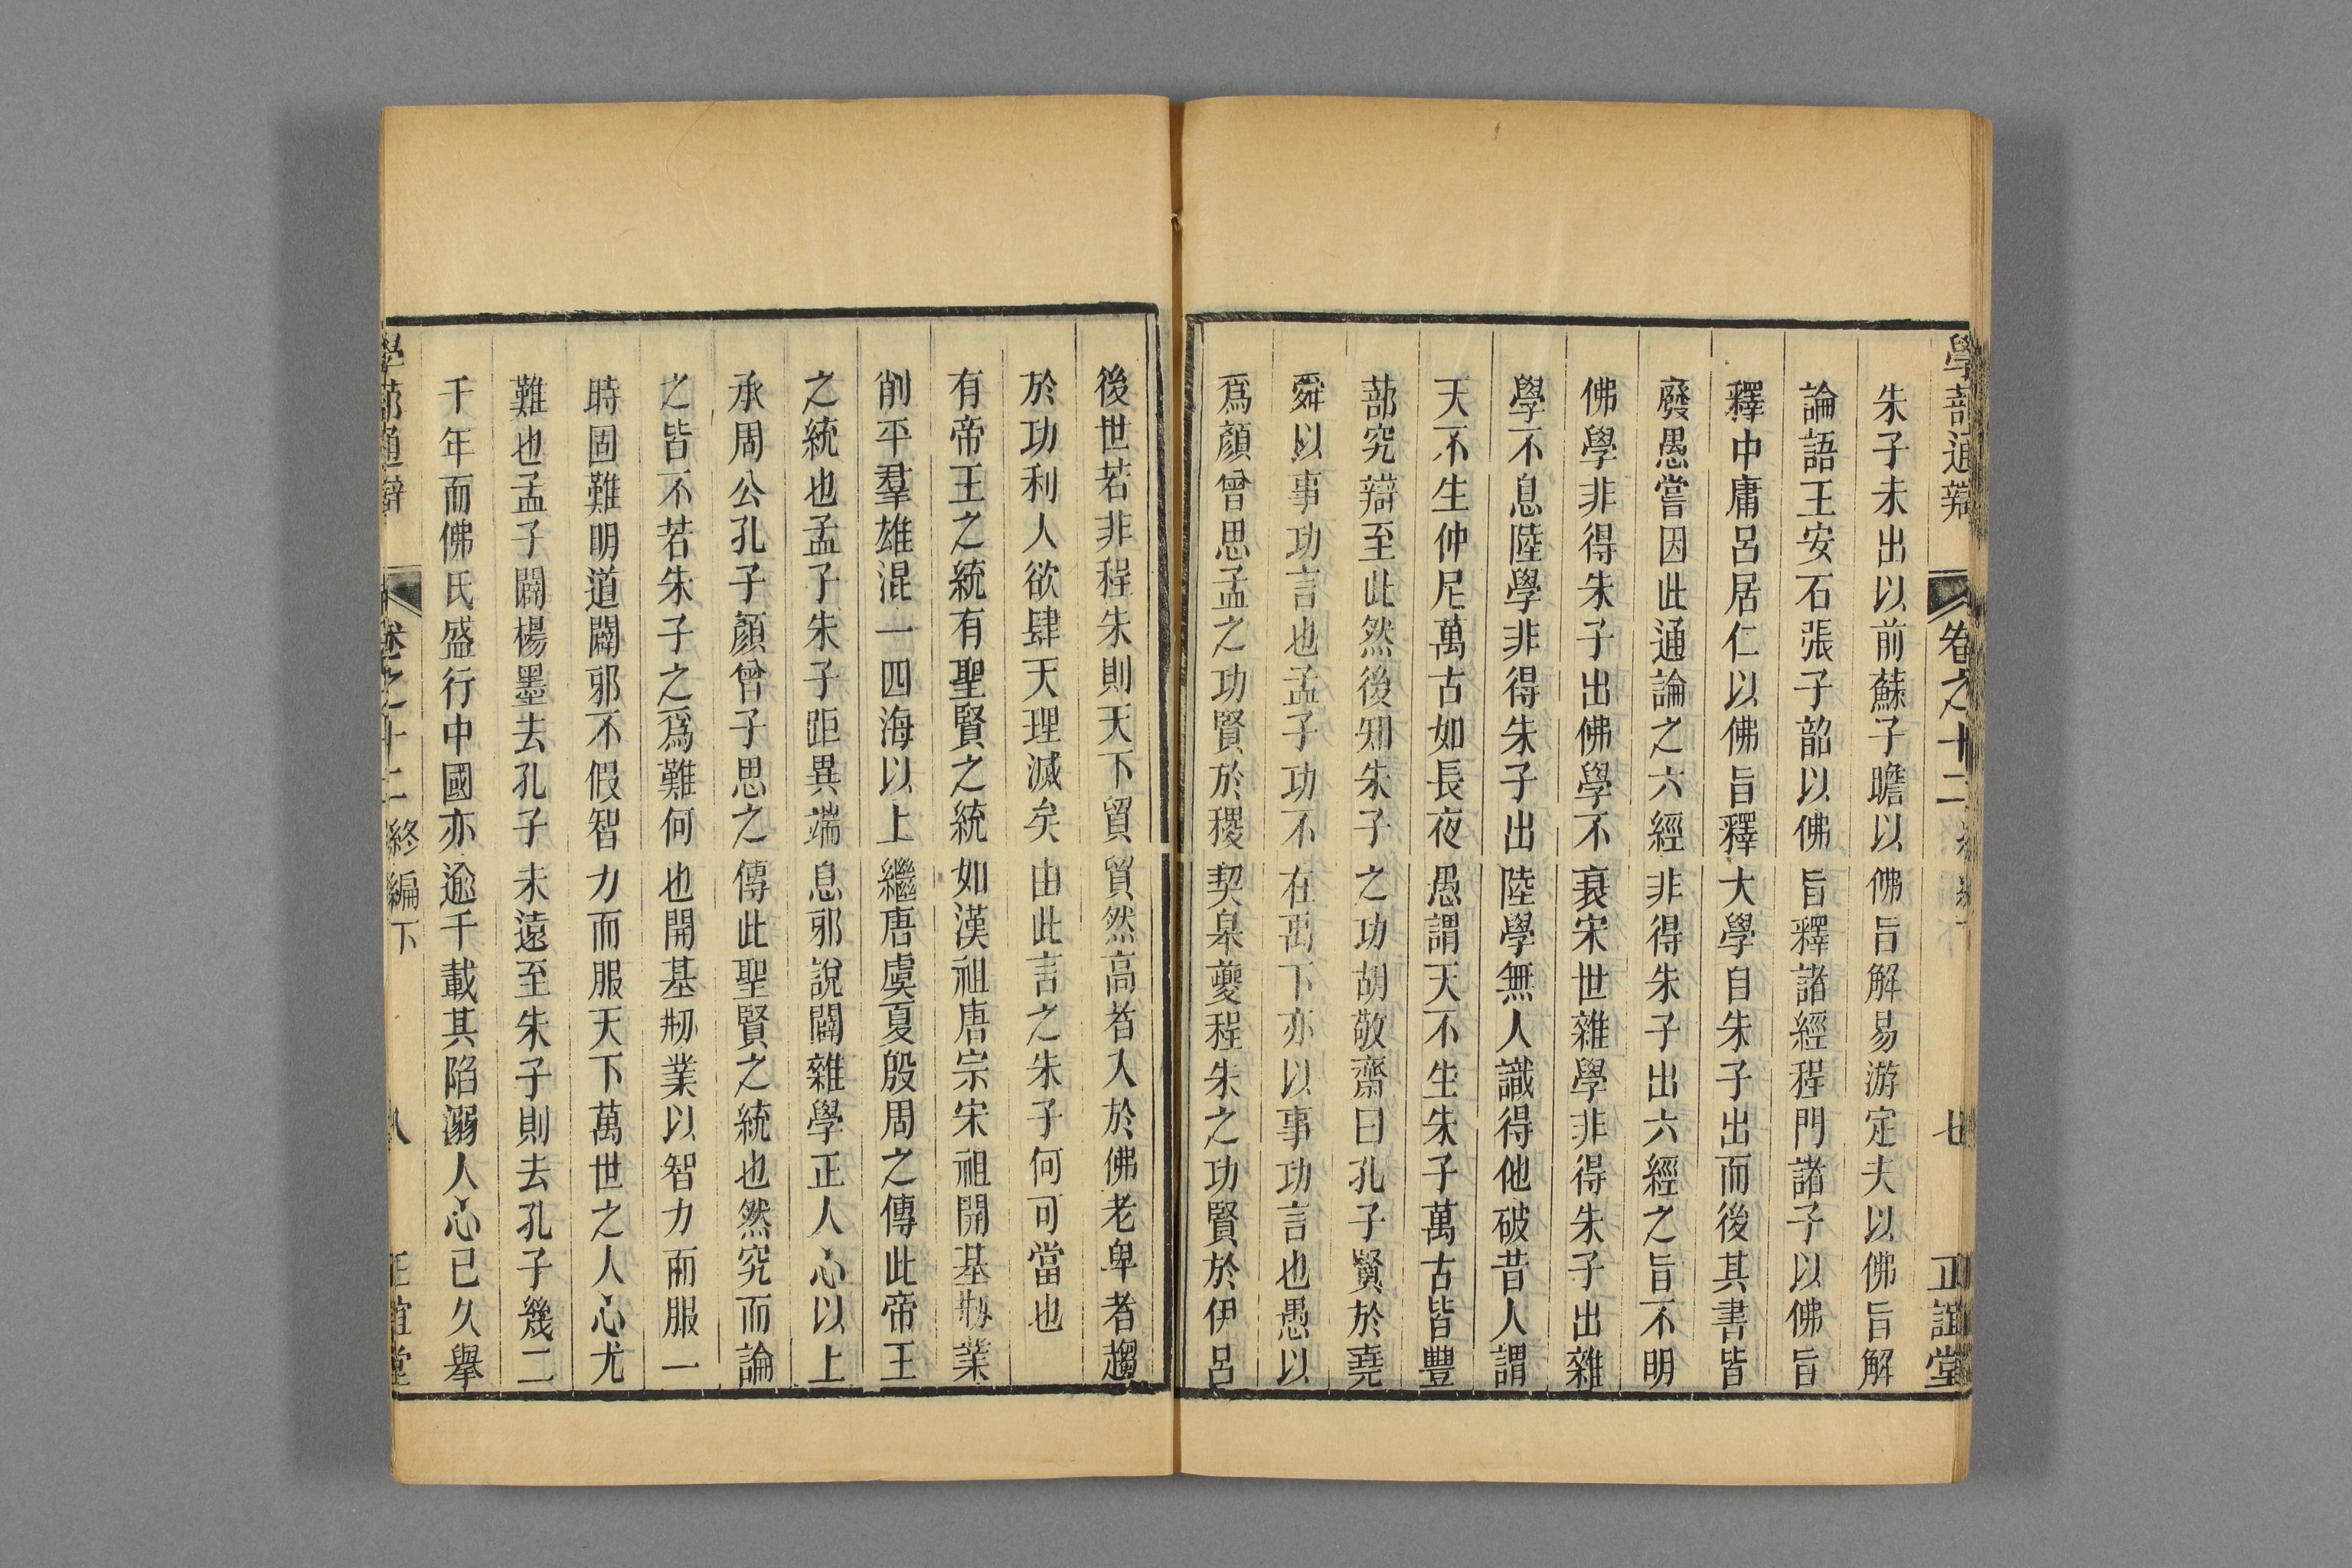 學蔀通辯 卷之十二 七 正誼堂
朱子未出以前蘇子瞻以佛旨解易游定夫以佛旨解
論語王安石張子韶以佛旨釋諸經程門諸子以佛旨
釋中庸呂居仁以佛旨釋大學自朱子出而後其書皆
廢愚嘗因此通論之六經非得朱子出六經之旨不明
佛學非得朱子出佛學不衰宋世雜學非得朱子出雜
學不息陸學非得朱子出陸學無人識得他破昔人謂
天不生仲尼萬古如長夜愚謂天不生朱子萬古皆豐
蔀究辯至此然後知朱子之功胡敬齋曰孔子賢於堯
舜以事功言也孟子功不在禹下亦以事功言也愚以
爲顏曾思孟之功賢於稷契臯夔程朱之功賢於伊呂
後世若非程朱則天下貿貿然高者入於佛老卑者趨
於功利人欲肆天理滅矣由此言之朱子何可當也
有帝王之統有聖賢之統如漢祖唐宗宋祖開基刱業
削平羣雄混一四海以上繼唐虞夏殷周之傳此帝王
之統也孟子朱子距異端息邪說闢雜學正人心以上
承周公孔子顏曾子思之傳此聖賢之統也然究而論
之皆不若朱子之爲難何也開基刱業以智力而服一
時固難明道闢邪不假智力而服天下萬世之人心尤
難也孟子闢楊墨去孔子未遠至朱子則去孔子幾二
千年而佛氏盛行中國亦逾千載其陷溺人心已久舉
學蔀通辯 卷之十二 終編下 八 正誼堂